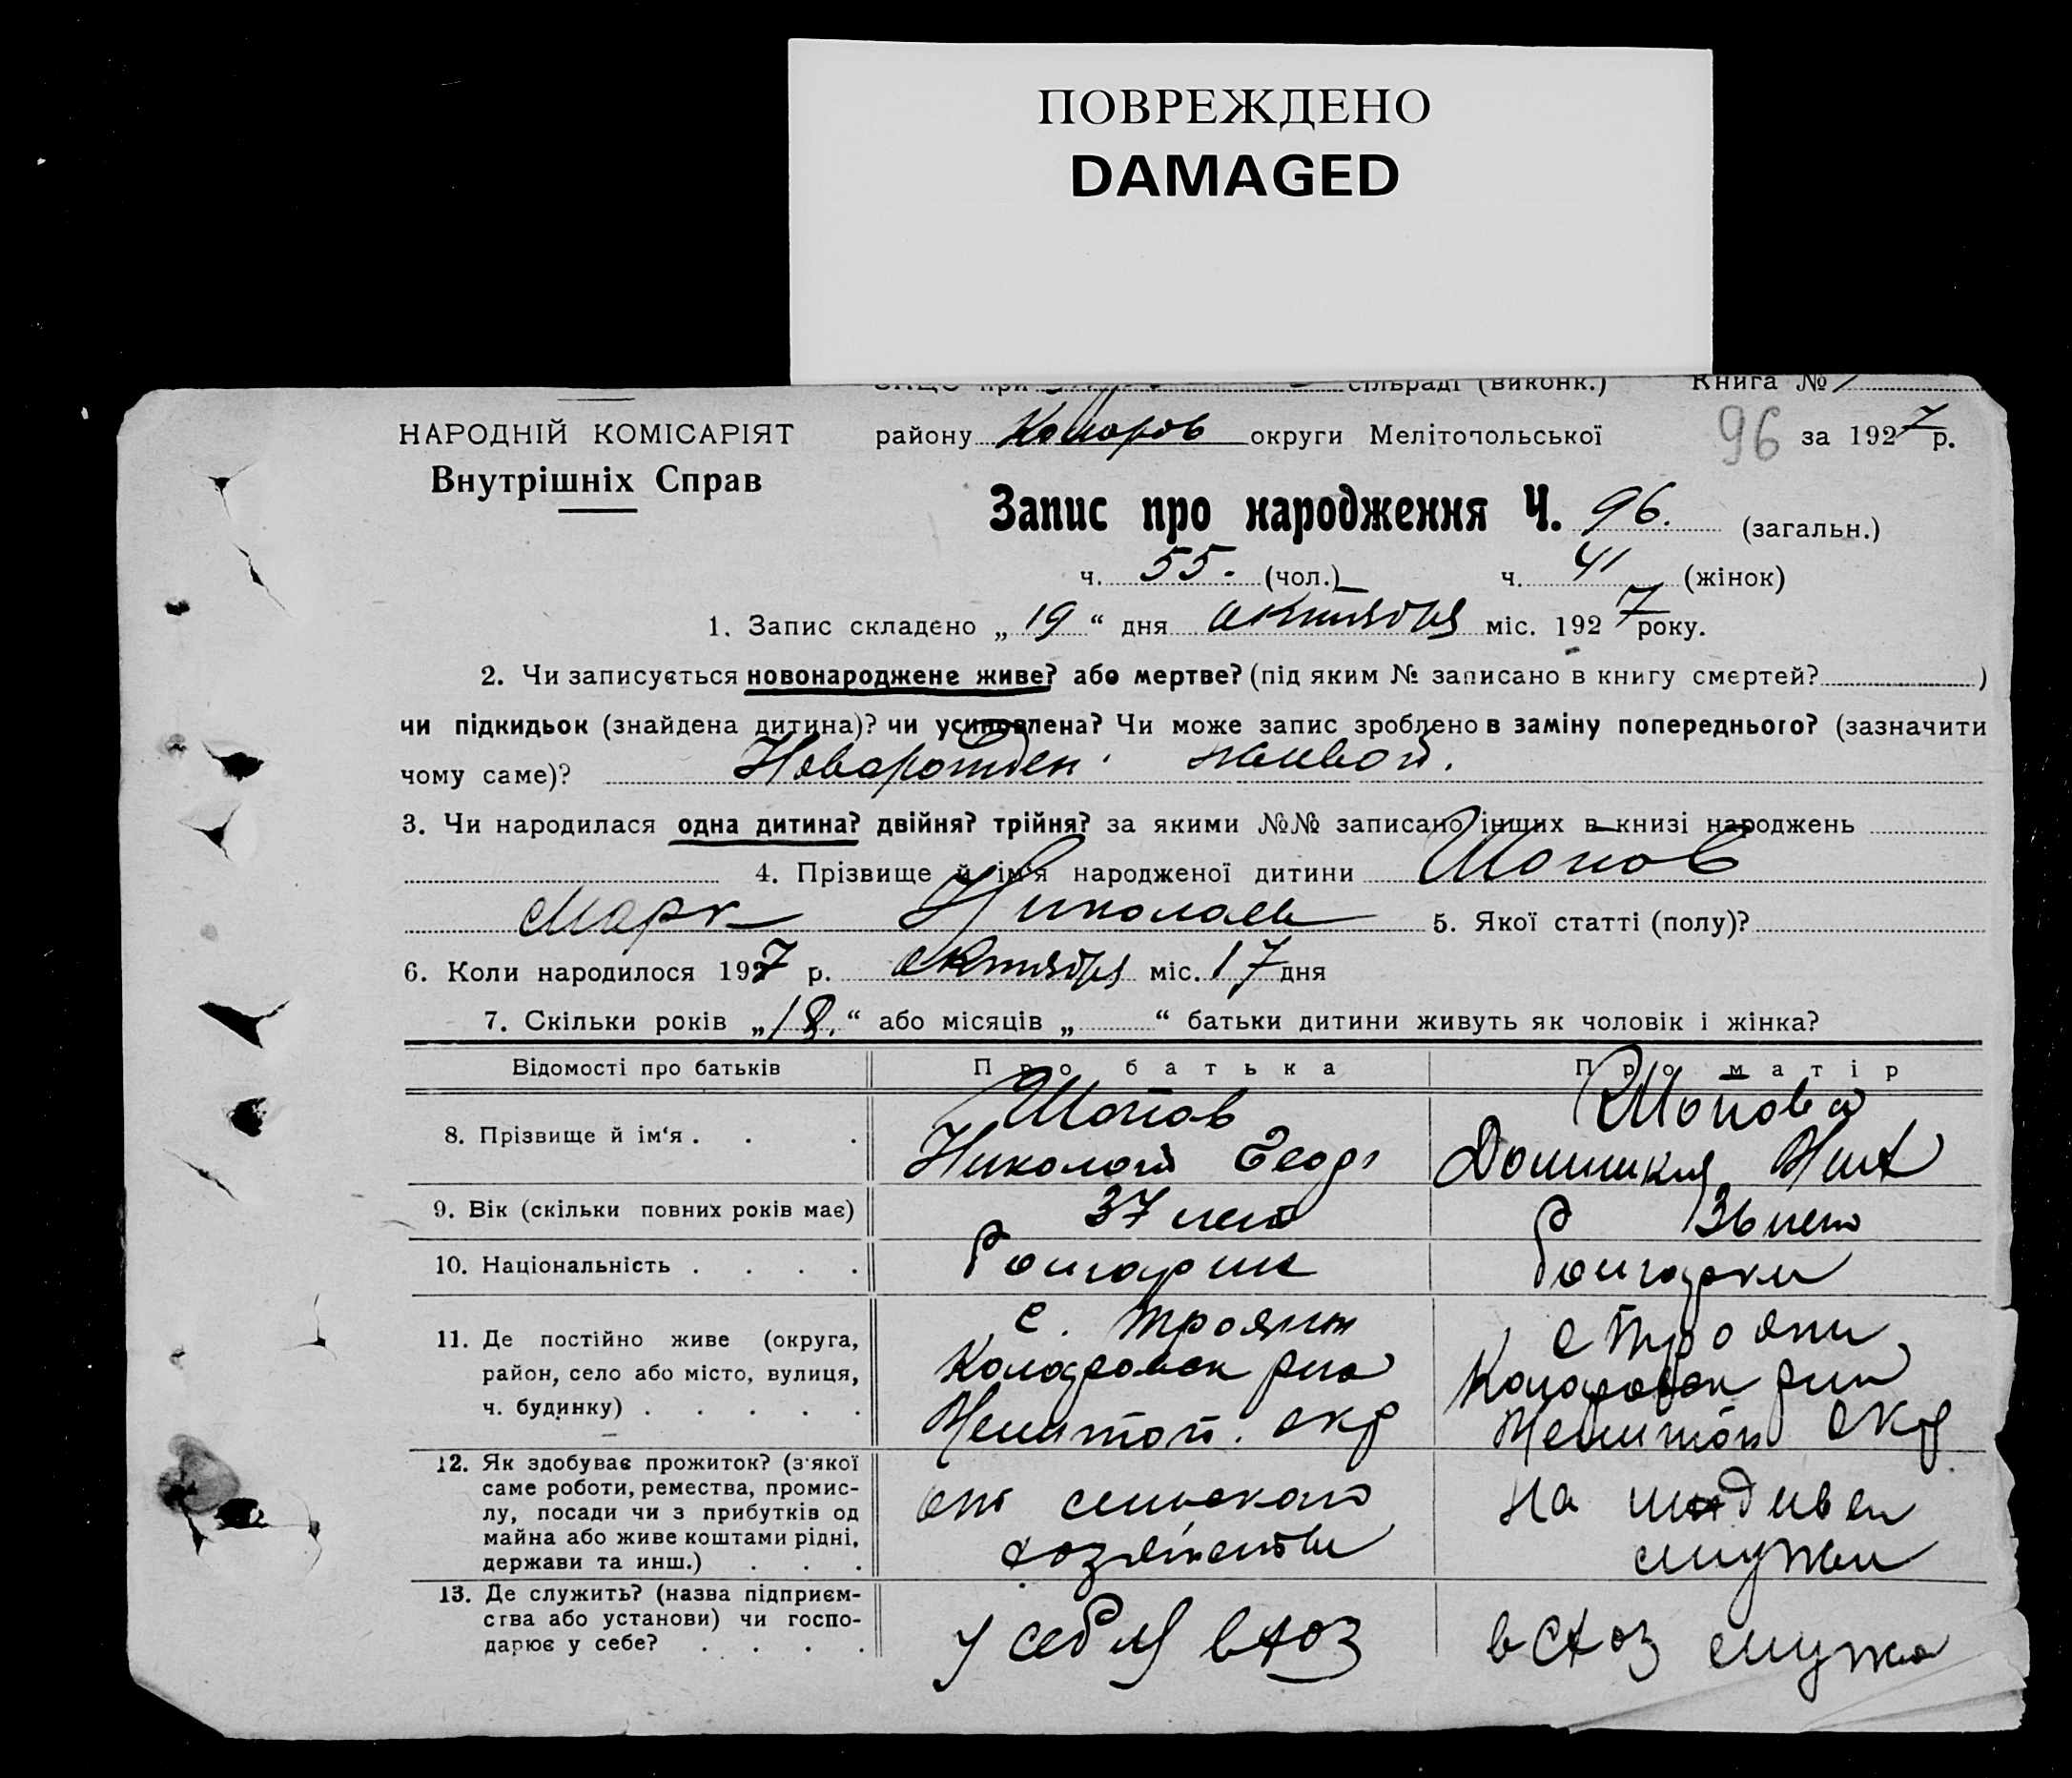 ПОВРЕЖДЕНО
DAMAGED
ЗАЦС при сільраді (виконк.) Книга №
НАРОДНІЙ КОМІСАРІЯТ
Внутрішніх Справ
району Коларов округи Мелітопольської 96 за 1927 р.
Запис про народження Ч. 96. (загальн.)
ч. 55. (чол.) ч. 41 (жінок)
1. Запис складено „ 19 “ дня октября міс. 1927 року.
2. Чи записується новонароджене живе? або мертве? (під яким № записано в книгу смертей? )
чи підкидьок (знайдена дитина)? чи усиновлена? Чи може запис зроблено в заміну попереднього? (зазначити
чому саме)? Новарожден. живой.
3. Чи народилася одна дитина? двійня? трійня? за якими №№ записано інших в книзі народжень
4. Прізвище й ім'я народженої дитини Шопов
Марк Николаев 5. Якої статті (полу)?
6. Коли народилося 1927 р. октября міс. 17 дня
7. Скільки років „ 18. “ або місяців „ “ батьки дитини живуть як чоловік і жінка?
Відомості про батьків Про батька Про матір
8. Прізвище й ім'я . . . Шопов Шопова
Николай Геор Домникия
9. Вік (скільки повних років має) 37 лет 36 лет
10. Національність . . . . болгарин болгарки
11. Де постійно живе (округа, с. Трояны с Трояни
район, село або місто, вулиця, Коларовск рна Коларовск рна
ч. будинку) . . . . . Мелитоп. окр Мелитоп окр
12. Як здобуває прожиток? (з'якої
саме роботи, ремества, промис-
лу, посади чи з прибутків од от сельского На иждивен
майна або живе коштами рідні, хозяйства мужа
держави та инш.) . . .
13. Де служить? (назва підприєм-
ства або установи) чи госпо- у себя в хоз в с хоз мужа
дарює у себе? . . . .